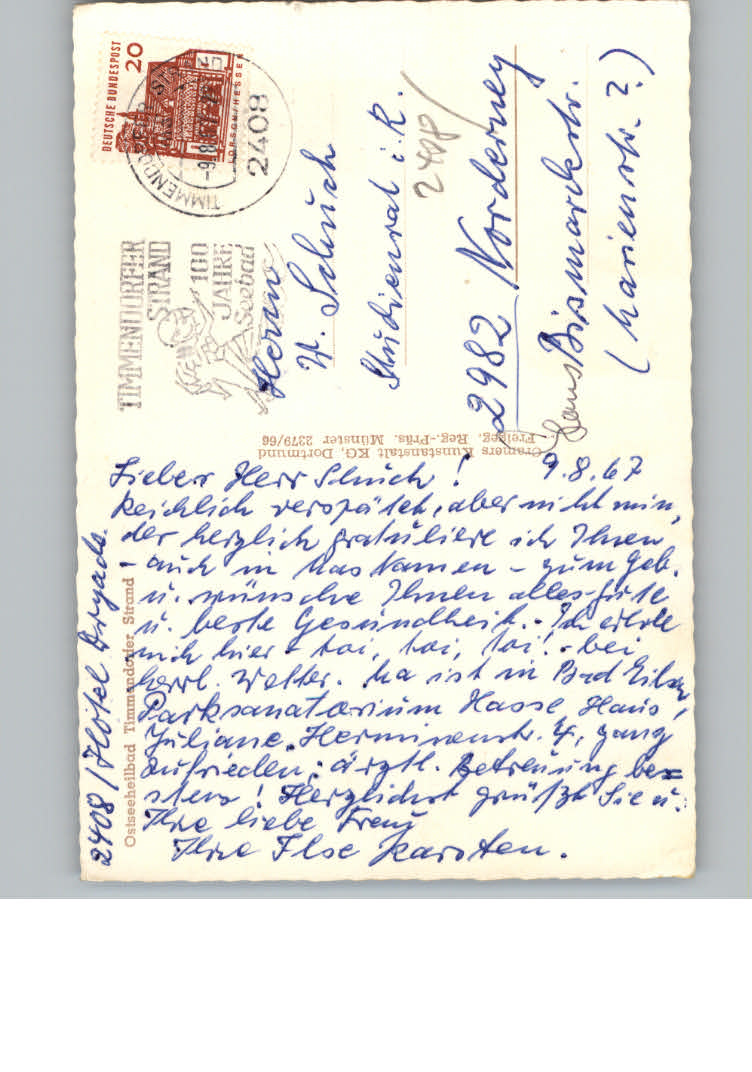 DEUTSCHE BUNDESPOST
20
LORSCH/HESSEN
TIMMENDORFER STRAND
-9.8.67
2408
TIMMENDORFER
STRAND
100
JAHRE
Seebad
Herrn
H. Schuch
Studienrat i. R.
2408/
2982 Norderney
Haus Bismarckstr.
(Marienstr. ?)
Cramers Kunstanstalt KG, Dortmund
Freigeg. Reg.-Präs. Münster 2379/66
Ostseeheilbad Timmendorfer Strand
2408 / Hotel Dryade.
Lieber Herr Schuch! 9.8.67
Reichlich verspätet, aber nicht min,
der herzlich gratuliere ich Ihnen
- auch in Mas Namen - zum Geb.
u. wünsche Ihnen alles Gute
u. beste Gesundheit. - Ich erhole
mich hier - toi, toi, toi! - bei
herrl. Wetter. Ma ist in Bad Eilsen,
Parksanatorium Hasse, Haus
Juliane, Herminenstr. 4, ganz
zufrieden; ärztl. Betreuung be=
stens! Herzlichst grüßt Sie u.
Ihre liebe Frau
Ihre Ilse Karsten.